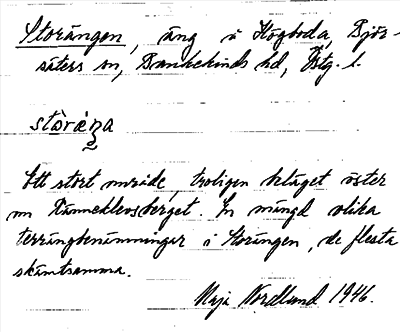 Storängen, äng i Högboda, Björ-
säters sn, Bankekinds hd, Östg. l.
stòràŋa
Ett stort område, troligen beläget öster
om Känneklevsberget. En mängd olika
terrängbenämningar i Storängen, de flesta
skämtsamma.
Maja Nordlund 1946.